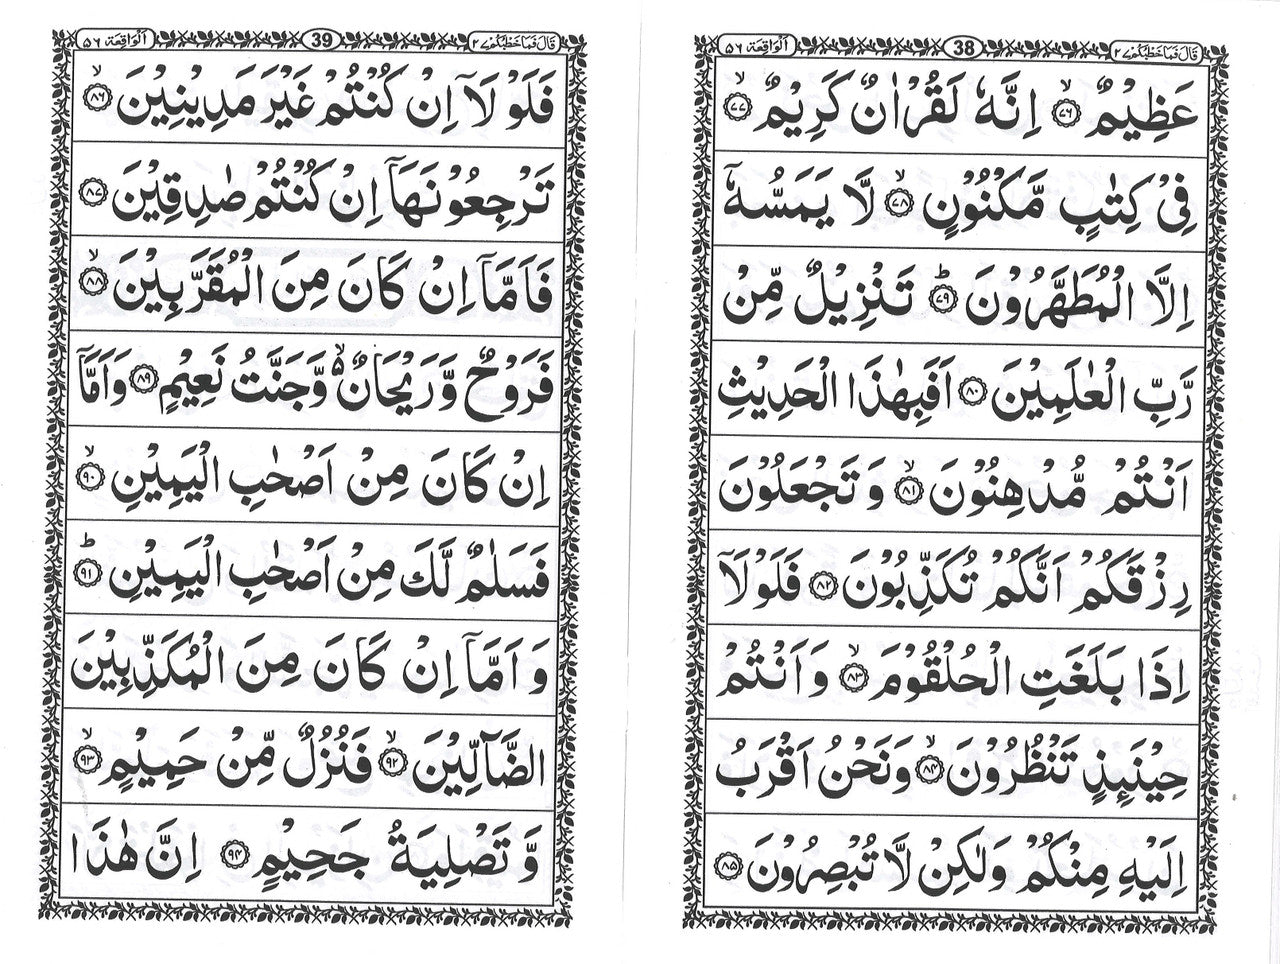 قَالَ فَمَا خَطْبُكُمْ ٢٧
38
اَلْوَاقِعَة ٥٦
عَظِيْمٌ ۙ‏﴿۷۶﴾ اِنَّهٗ لَقُرْاٰنٌ كَرِيْمٌ ۙ‏﴿۷۷﴾
فِىْ كِتٰبٍ مَّكْنُوْنٍ ۙ‏﴿۷۸﴾ لَّا يَمَسُّهٗۤ
اِلَّا الْمُطَهَّرُوْنَ ؕ‏﴿۷۹﴾ تَنْزِيْلٌ مِّنْ
رَّبِّ الْعٰلَمِيْنَ‏﴿۸۰﴾ اَفَبِهٰذَا الْحَدِيْثِ
اَنْتُمْ مُّدْهِنُوْنَ ۙ‏﴿۸۱﴾ وَتَجْعَلُوْنَ
رِزْقَكُمْ اَنَّكُمْ تُكَذِّبُوْنَ‏﴿۸۲﴾ فَلَوْلَاۤ
اِذَا بَلَغَتِ الْحُلْقُوْمَ ۙ‏﴿۸۳﴾ وَاَنْتُمْ
حِيْنَئِذٍ تَنْظُرُوْنَ ۙ‏﴿۸۴﴾ وَنَحْنُ اَقْرَبُ
اِلَيْهِ مِنْكُمْ وَلٰكِنْ لَّا تُبْصِرُوْنَ‏﴿۸۵﴾
قَالَ فَمَا خَطْبُكُمْ ٢٧
39
اَلْوَاقِعَة ٥٦
فَلَوْلَاۤ اِنْ كُنْتُمْ غَيْرَ مَدِيْنِيْنَ ۙ‏﴿۸۶﴾
تَرْجِعُوْنَهَاۤ اِنْ كُنْتُمْ صٰدِقِيْنَ‏﴿۸۷﴾
فَاَمَّاۤ اِنْ كَانَ مِنَ الْمُقَرَّبِيْنَ ۙ‏﴿۸۸﴾
فَرَوْحٌ وَّرَيْحَانٌ ۙ۬ وَّجَنَّتُ نَعِيْمٍ‏﴿۸۹﴾ وَاَمَّاۤ
اِنْ كَانَ مِنْ اَصْحٰبِ الْيَمِيْنِ ۙ‏﴿۹۰﴾
فَسَلٰمٌ لَّكَ مِنْ اَصْحٰبِ الْيَمِيْنِ ؕ‏﴿۹۱﴾
وَاَمَّاۤ اِنْ كَانَ مِنَ الْمُكَذِّبِيْنَ
الضَّآلِّيْنَ ۙ‏﴿۹۲﴾ فَنُزُلٌ مِّنْ حَمِيْمٍ ۙ‏﴿۹۳﴾
وَّتَصْلِيَةُ جَحِيْمٍ‏﴿۹۴﴾ اِنَّ هٰذَا